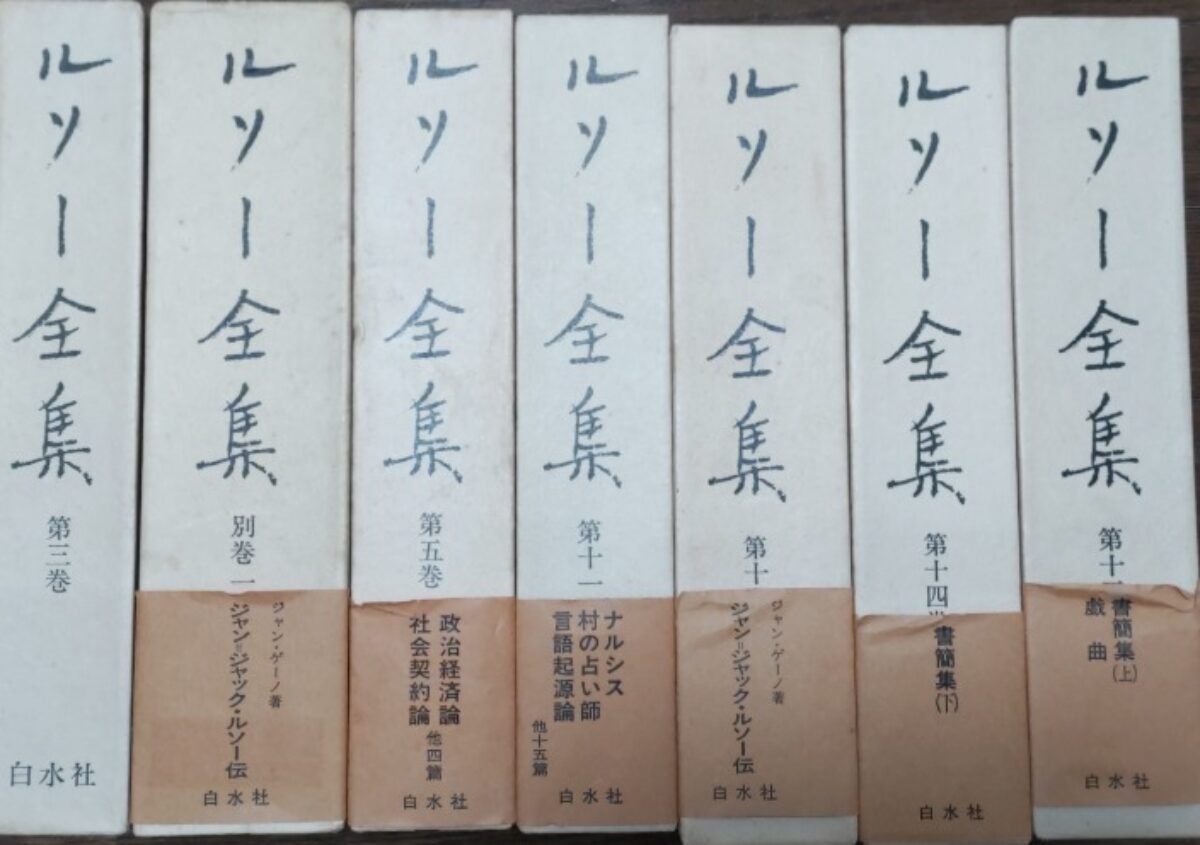 ルソー全集
第三巻
白水社
ルソー全集
別巻一
ジャン・ゲーノ著
ジャン=ジャック・ルソー伝
白水社
ルソー全集
第五巻
政治経済論
社会契約論
他四篇
白水社
ルソー全集
第十一
ナルシス
村の占い師
言語起源論
他十五篇
白水社
ルソー全集
第十
ジャン・ゲーノ著
ジャン=ジャック・ルソー伝
白水社
ルソー全集
第十四
書簡集(下)
白水社
ルソー全集
第十
書簡集(上)
戯曲
白水社